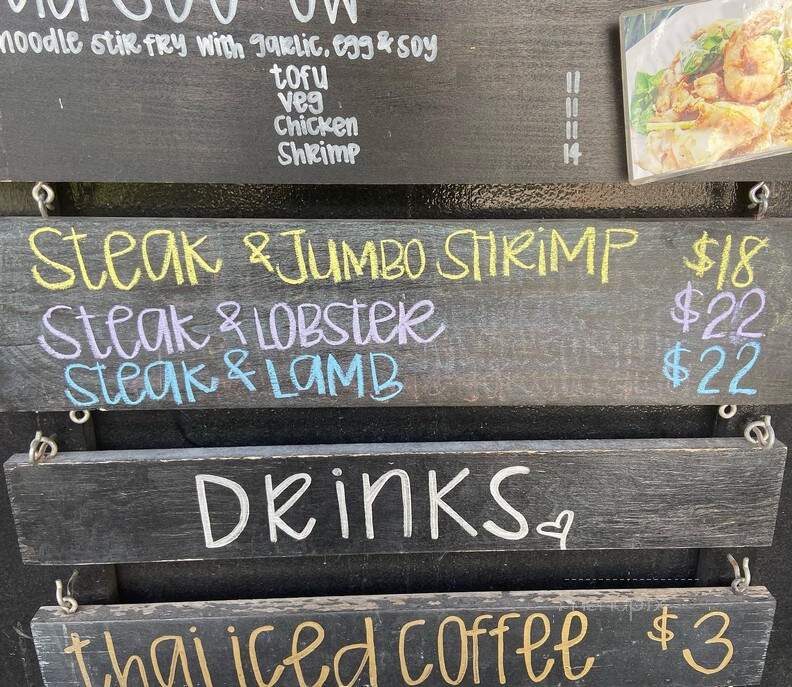 noodle stir fry with garlic, egg & soy
tofu 11
veg 11
Chicken 11
Shrimp 14
Steak & Jumbo SHRiMP $18
Steak & LOBSTER $22
Steak & LAMB $22
DRiNKS
thai iced coffee $3